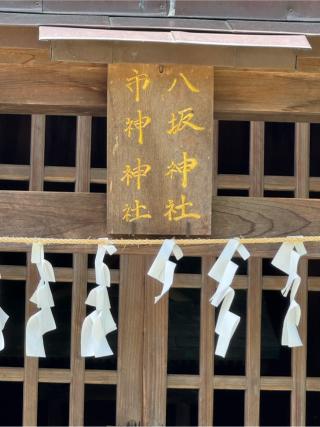 八坂神社
市神神社